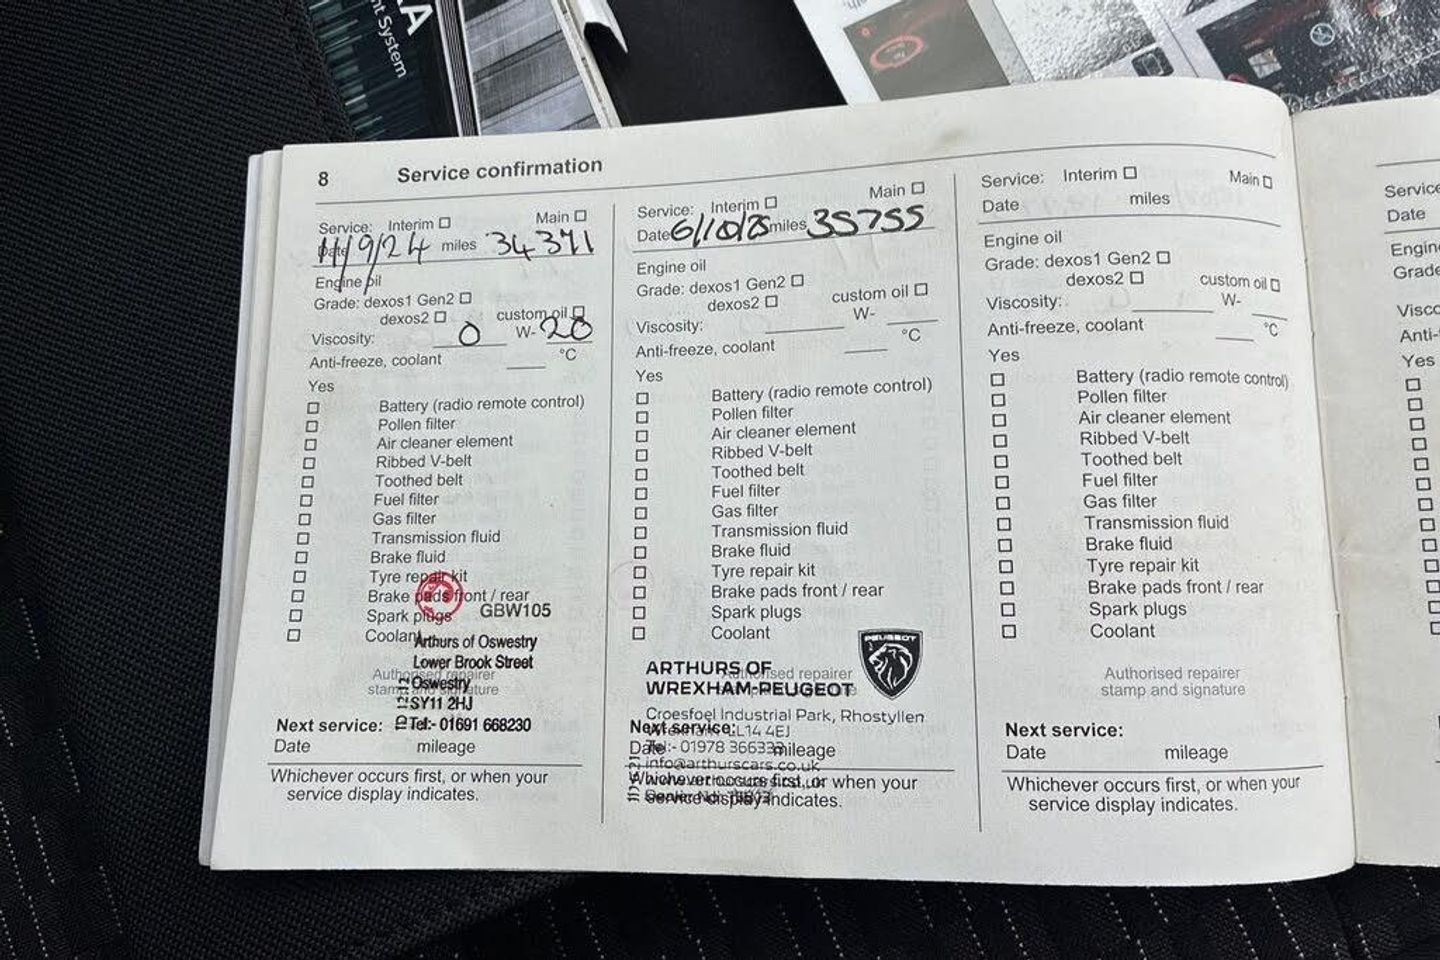 AA
nt System
8 Service confirmation
Service: Interim ☐ Main ☐
Date 11/9/24 miles 34371
Engine oil
Grade: dexos1 Gen2 ☐
dexos2 ☐ custom oil ☐
Viscosity: 0 W- 20
Anti-freeze, coolant °C
Yes
☐ Battery (radio remote control)
☐ Pollen filter
☐ Air cleaner element
☐ Ribbed V-belt
☐ Toothed belt
☐ Fuel filter
☐ Gas filter
☐ Transmission fluid
☐ Brake fluid
☐ Tyre repair kit
☐ Brake pads front / rear
☐ Spark plugs
☐ Coolant
GBW105
Arthurs of Oswestry
Lower Brook Street
Oswestry
SY11 2HJ
Tel:- 01691 668230
Authorised repairer
stamp and signature
Next service:
Date mileage
Whichever occurs first, or when your
service display indicates.
Service: Interim ☐ Main ☐
Date 6/10/25 miles 35755
Engine oil
Grade: dexos1 Gen2 ☐
dexos2 ☐ custom oil ☐
Viscosity: W-
Anti-freeze, coolant °C
Yes
☐ Battery (radio remote control)
☐ Pollen filter
☐ Air cleaner element
☐ Ribbed V-belt
☐ Toothed belt
☐ Fuel filter
☐ Gas filter
☐ Transmission fluid
☐ Brake fluid
☐ Tyre repair kit
☐ Brake pads front / rear
☐ Spark plugs
☐ Coolant
PEUGEOT
ARTHURS OF
WREXHAM-PEUGEOT
Croesfoel Industrial Park, Rhostyllen
LL14 4EJ
Tel:- 01978 366333
info@arthurscars.co.uk
Authorised repairer
Next service:
Date mileage
Whichever occurs first, or when your
service display indicates.
Service: Interim ☐ Main ☐
Date miles
Engine oil
Grade: dexos1 Gen2 ☐
dexos2 ☐ custom oil ☐
Viscosity: W-
Anti-freeze, coolant °C
Yes
☐ Battery (radio remote control)
☐ Pollen filter
☐ Air cleaner element
☐ Ribbed V-belt
☐ Toothed belt
☐ Fuel filter
☐ Gas filter
☐ Transmission fluid
☐ Brake fluid
☐ Tyre repair kit
☐ Brake pads front / rear
☐ Spark plugs
☐ Coolant
Authorised repairer
stamp and signature
Next service:
Date mileage
Whichever occurs first, or when your
service display indicates.
Service
Date
Engin
Grade
Visco
Anti-
Yes